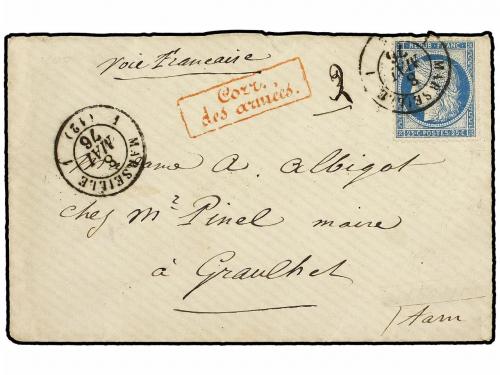 Voie Française
Corr.
des armées.
2
MARSEILLE
8
MAI
REPUB · FRANC
25c POSTES 25c
MARSEILLE
8
MAI
76
1 (12)
Madame A. Albigot
chez Mr Pinel maire
à Graulhet
Tarn